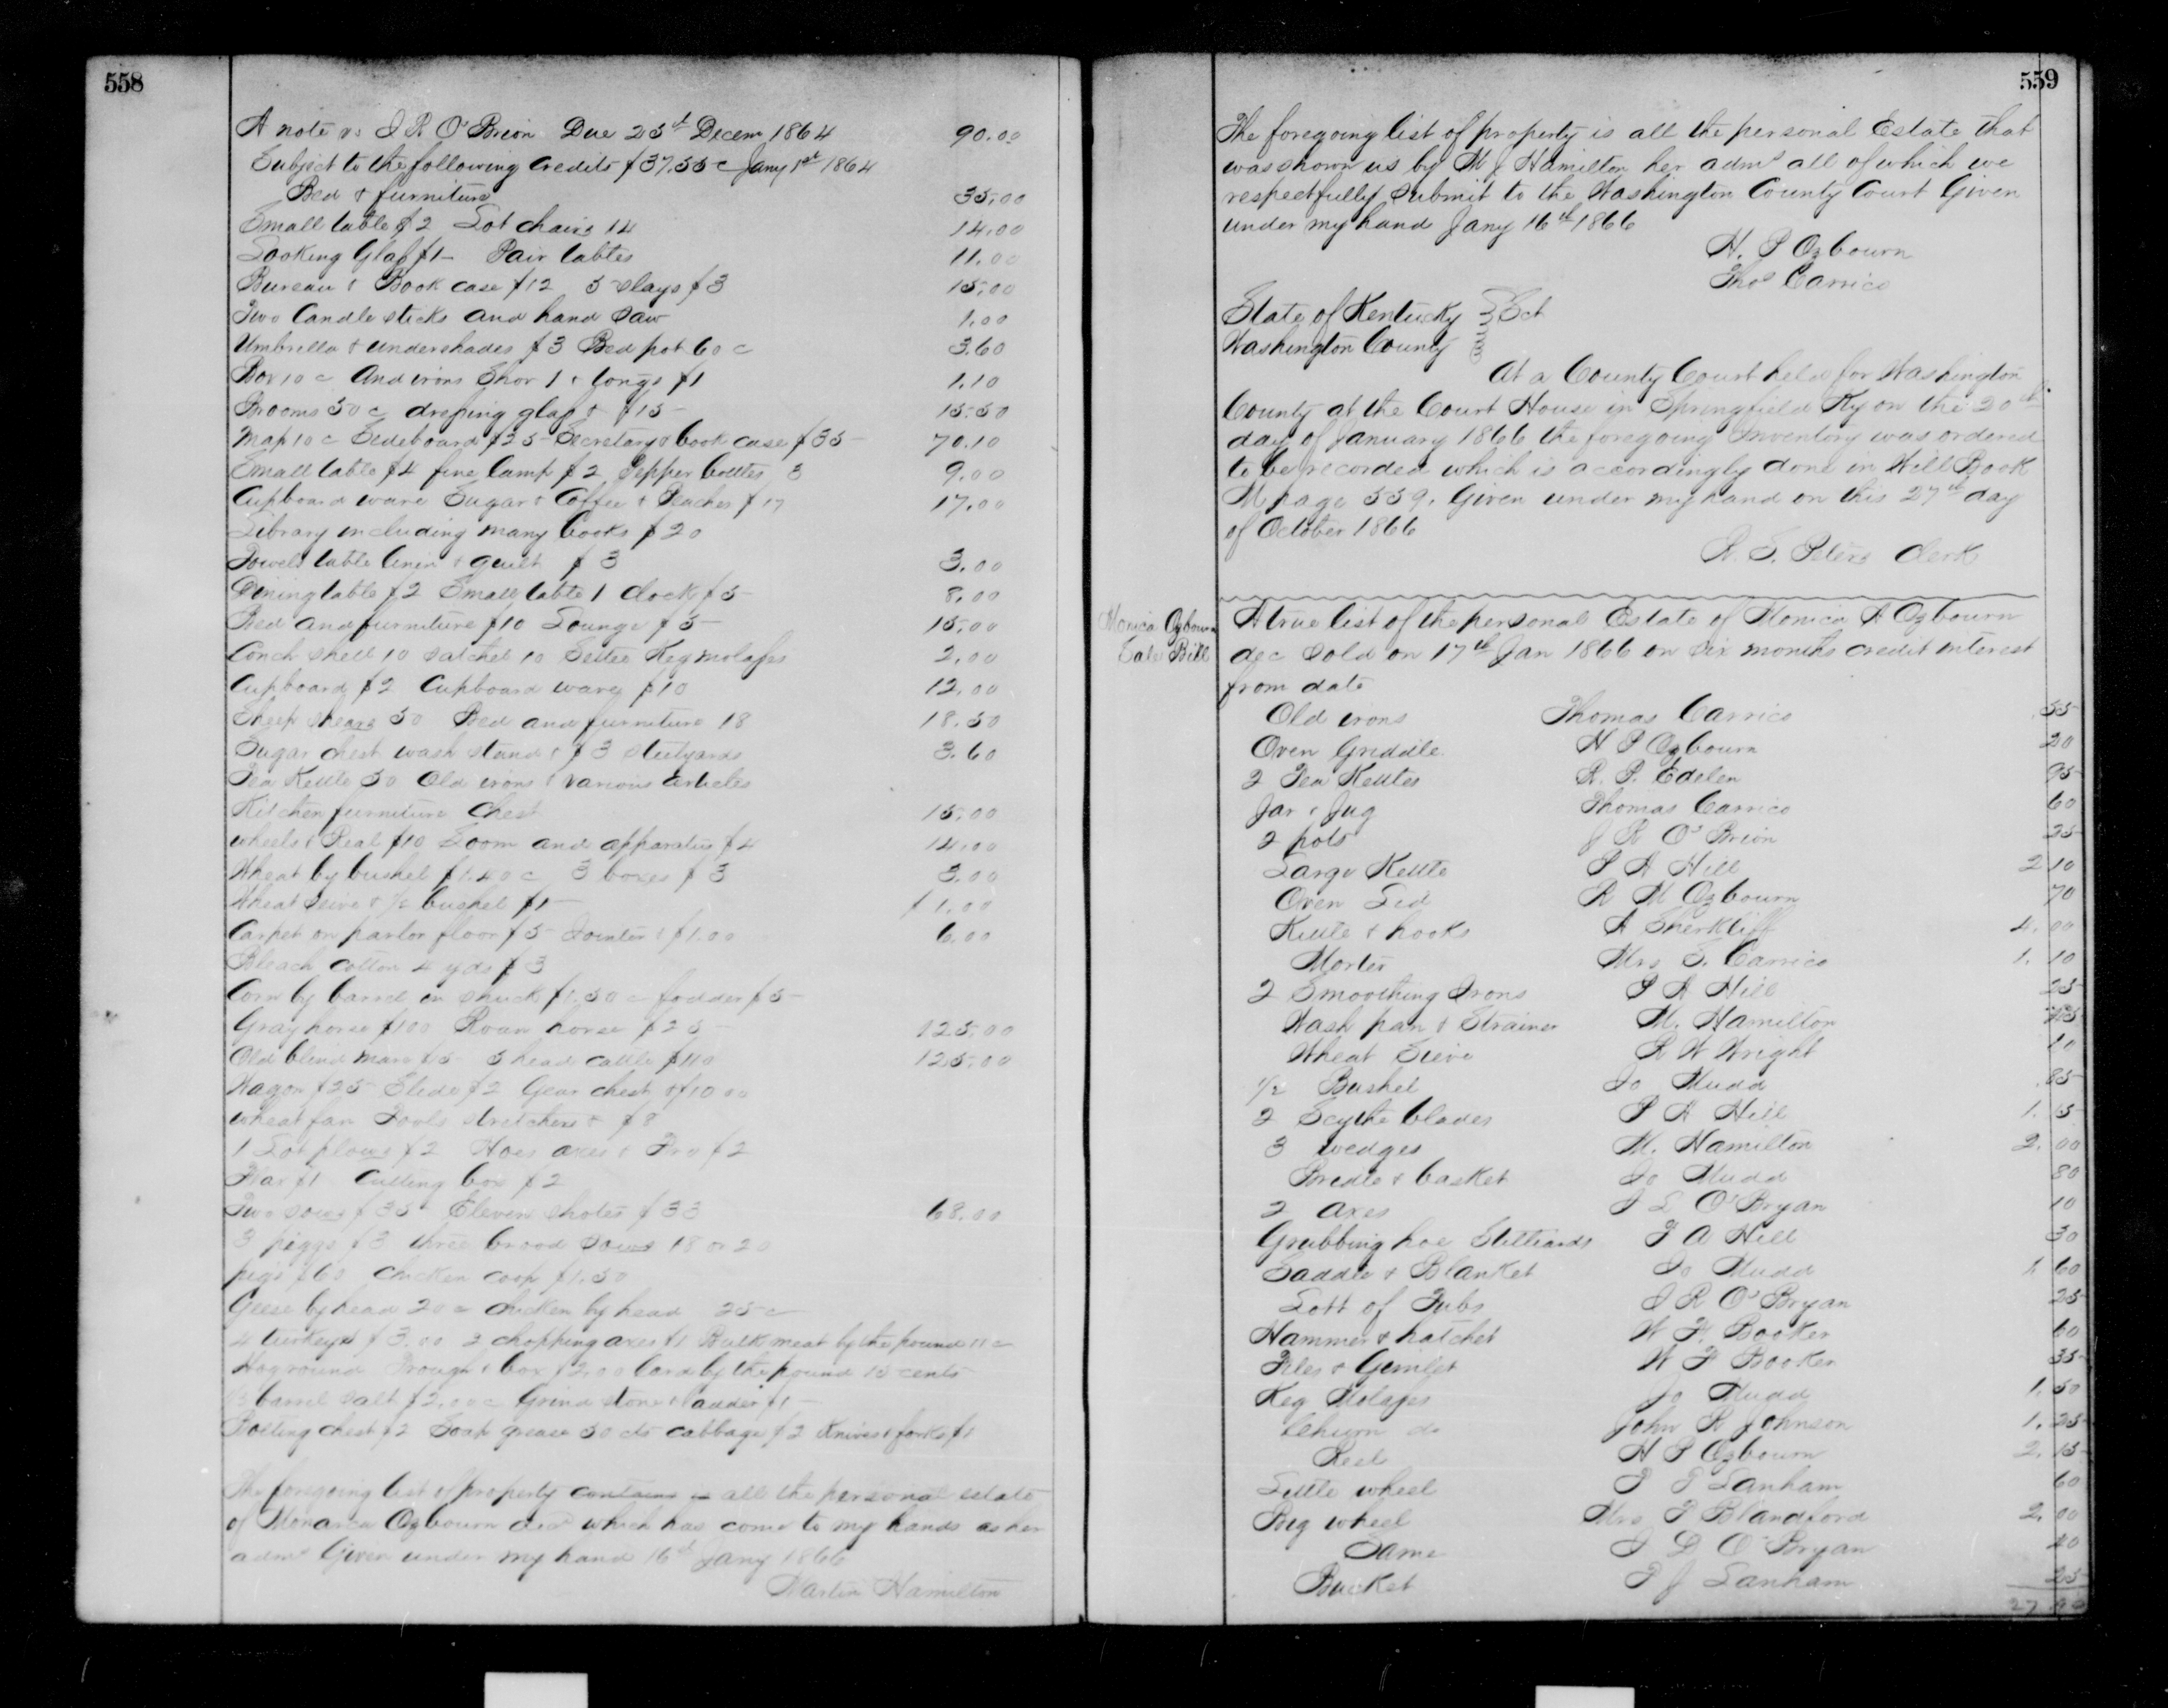 558
A note vs J R O'Brion Due 25th Decem 1864 90.00
Subject to the following Credits $37.55 c Jany 1st 1864
Bed & furniture 35,00
Small table $2 Lot chairs 14 14.00
Looking Glass $1- Pair tables 11.00
Bureau & Book case $12 5 slays $3 15,00
Two Candle sticks and hand saw 1.00
Umbrella & undershades $3 Bed pot 60 c 3.60
Box 10 c And irons Shov 1 & Tongs $1 1.10
Brooms 50 c dressing glass & $15- 15.50
Map 10 c Sideboard $35- Secretary & book case $35- 70.10
Small table $4 fine Lamp $2 Pepper bottles 3 9.00
Cupboard ware Sugar & Coffee & Peaches $17 17.00
Library including many books $20
Towels table linin & quilt $3 3.00
Dining table $2 Small table 1 clock $5- 8.00
Bed and furniture $10 Lounge $5- 15,00
Conch shell 10 Satchel 10 Settee Keg molasses 2,00
Cupboard $2 Cupboard ware $10 12,00
Sheep shears 50 Bed and furniture 18 18.50
Sugar chest wash stand & $3 steelyards 3.60
Tea Kettle 50 Old irons & various articles
Kitchen furniture Chest 15,00
wheels & Real $10 Loom and apparatus $4 14.00
Wheat by bushel $1.40 c 3 boxes $3 3.00
Wheat Seive & 1/2 bushel $1- $1.00
Carpet on parlor floor $5- Jointer & $1.00 6.00
Bleach cotton 4 yds $3
Corn by barrel in shuck $1.50 c fodder $5-
Gray horse $100 Roan horse $25- 125,00
Old blind mare $15- 5 head cattle $110 125,00
Wagon $25- Slide $2 Gear chest & $10 00
wheat fan Tools stretchers & $8
1 Lot plows $2 Hoes axes & Fro $2
Flax $1 Cutting box $2
Two sows $35- Eleven shotes $33 68.00
3 piggs $3 three brood sows 18 or 20
pigs $60 chicken coop $1.50
Geese by head 20 c chicken by head 25 c
4 turkeys $3.00 2 chopping axes $1 Bulk meat by the pound 11 c
Hog round Trough & box $2,00 lard by the pound 15 cents
barrel salt $2,00 c Grind stone & ladder $1-
Bolting chest $2 Soap grease 50 cts cabbage $2 Knives & forks $1
The foregoing list of property contains is all the personal estate
of Monarca Ozbourn decd which has come to my hands as her
admr Given under my hand 16th Jany 1866
Martin Hamilton
559
The foregoing list of property is all the personal Estate that
was shown us by M J Hamilton her admr all of which we
respectfully submit to the Washington County Court Given
under my hand Jany 16th 1866
H. P Ozbourn
Thos Carrico
State of Kentucky } Sct
Washington County
At a County Court held for Washington
County at the Court House in Springfield Ky on the 20th
day of January 1866 the foregoing Inventory was ordered
to be recorded which is accordingly done in Will Book
M page 559. Given under my hand on this 27th day
of October 1866
W. S. Peters Clerk
Monica Ozbourn
Sale Bill
A true list of the personal Estate of Monica A Ozbourn
dec sold on 17th Jan 1866 on six months credit interest
from date
Old irons Thomas Carrico .55
Oven Griddle H P Ozbourn 20
2 Tea Kettles R. P. Edelen 95
Jar & Jug Thomas Carrico 60
2 pots J R O'Brion 25
Large Kettle P A Hill 2 10
Oven Lid R M Ozbourn 70
Kettle & hooks A Sherkliff 4.00
Morter Mrs E. Carrico 1.10
2 Smoothing Irons P A Hill 25
Wash pan & Strainer M. Hamilton
Wheat Sieve R W Wright 10
1/2 Bushel Jo Mudd .85
2 Scythe blades P A Hill 1.5
3 wedges M. Hamilton 2.00
Bridle & basket Jo Mudd 80
2 axes J L O'Bryan 10
Grubbing hoe Stilliards P A Hill 30
Saddle & Blanket Jo Mudd 1.60
Lott of Tubs J R O'Bryan 25
Hammer & hatchet W F. Booker 60
Files & Gimlet W F Booker 35
Keg Molasses Jo Mudd 1.50
Churn do John R Johnson 1.25
Reel H P Ozbourn 2.15
Little wheel P J Lanham 60
Big wheel Mrs P Blandford 2.00
Same J L O'Bryan 40
Bucket P J Lanham 25
27